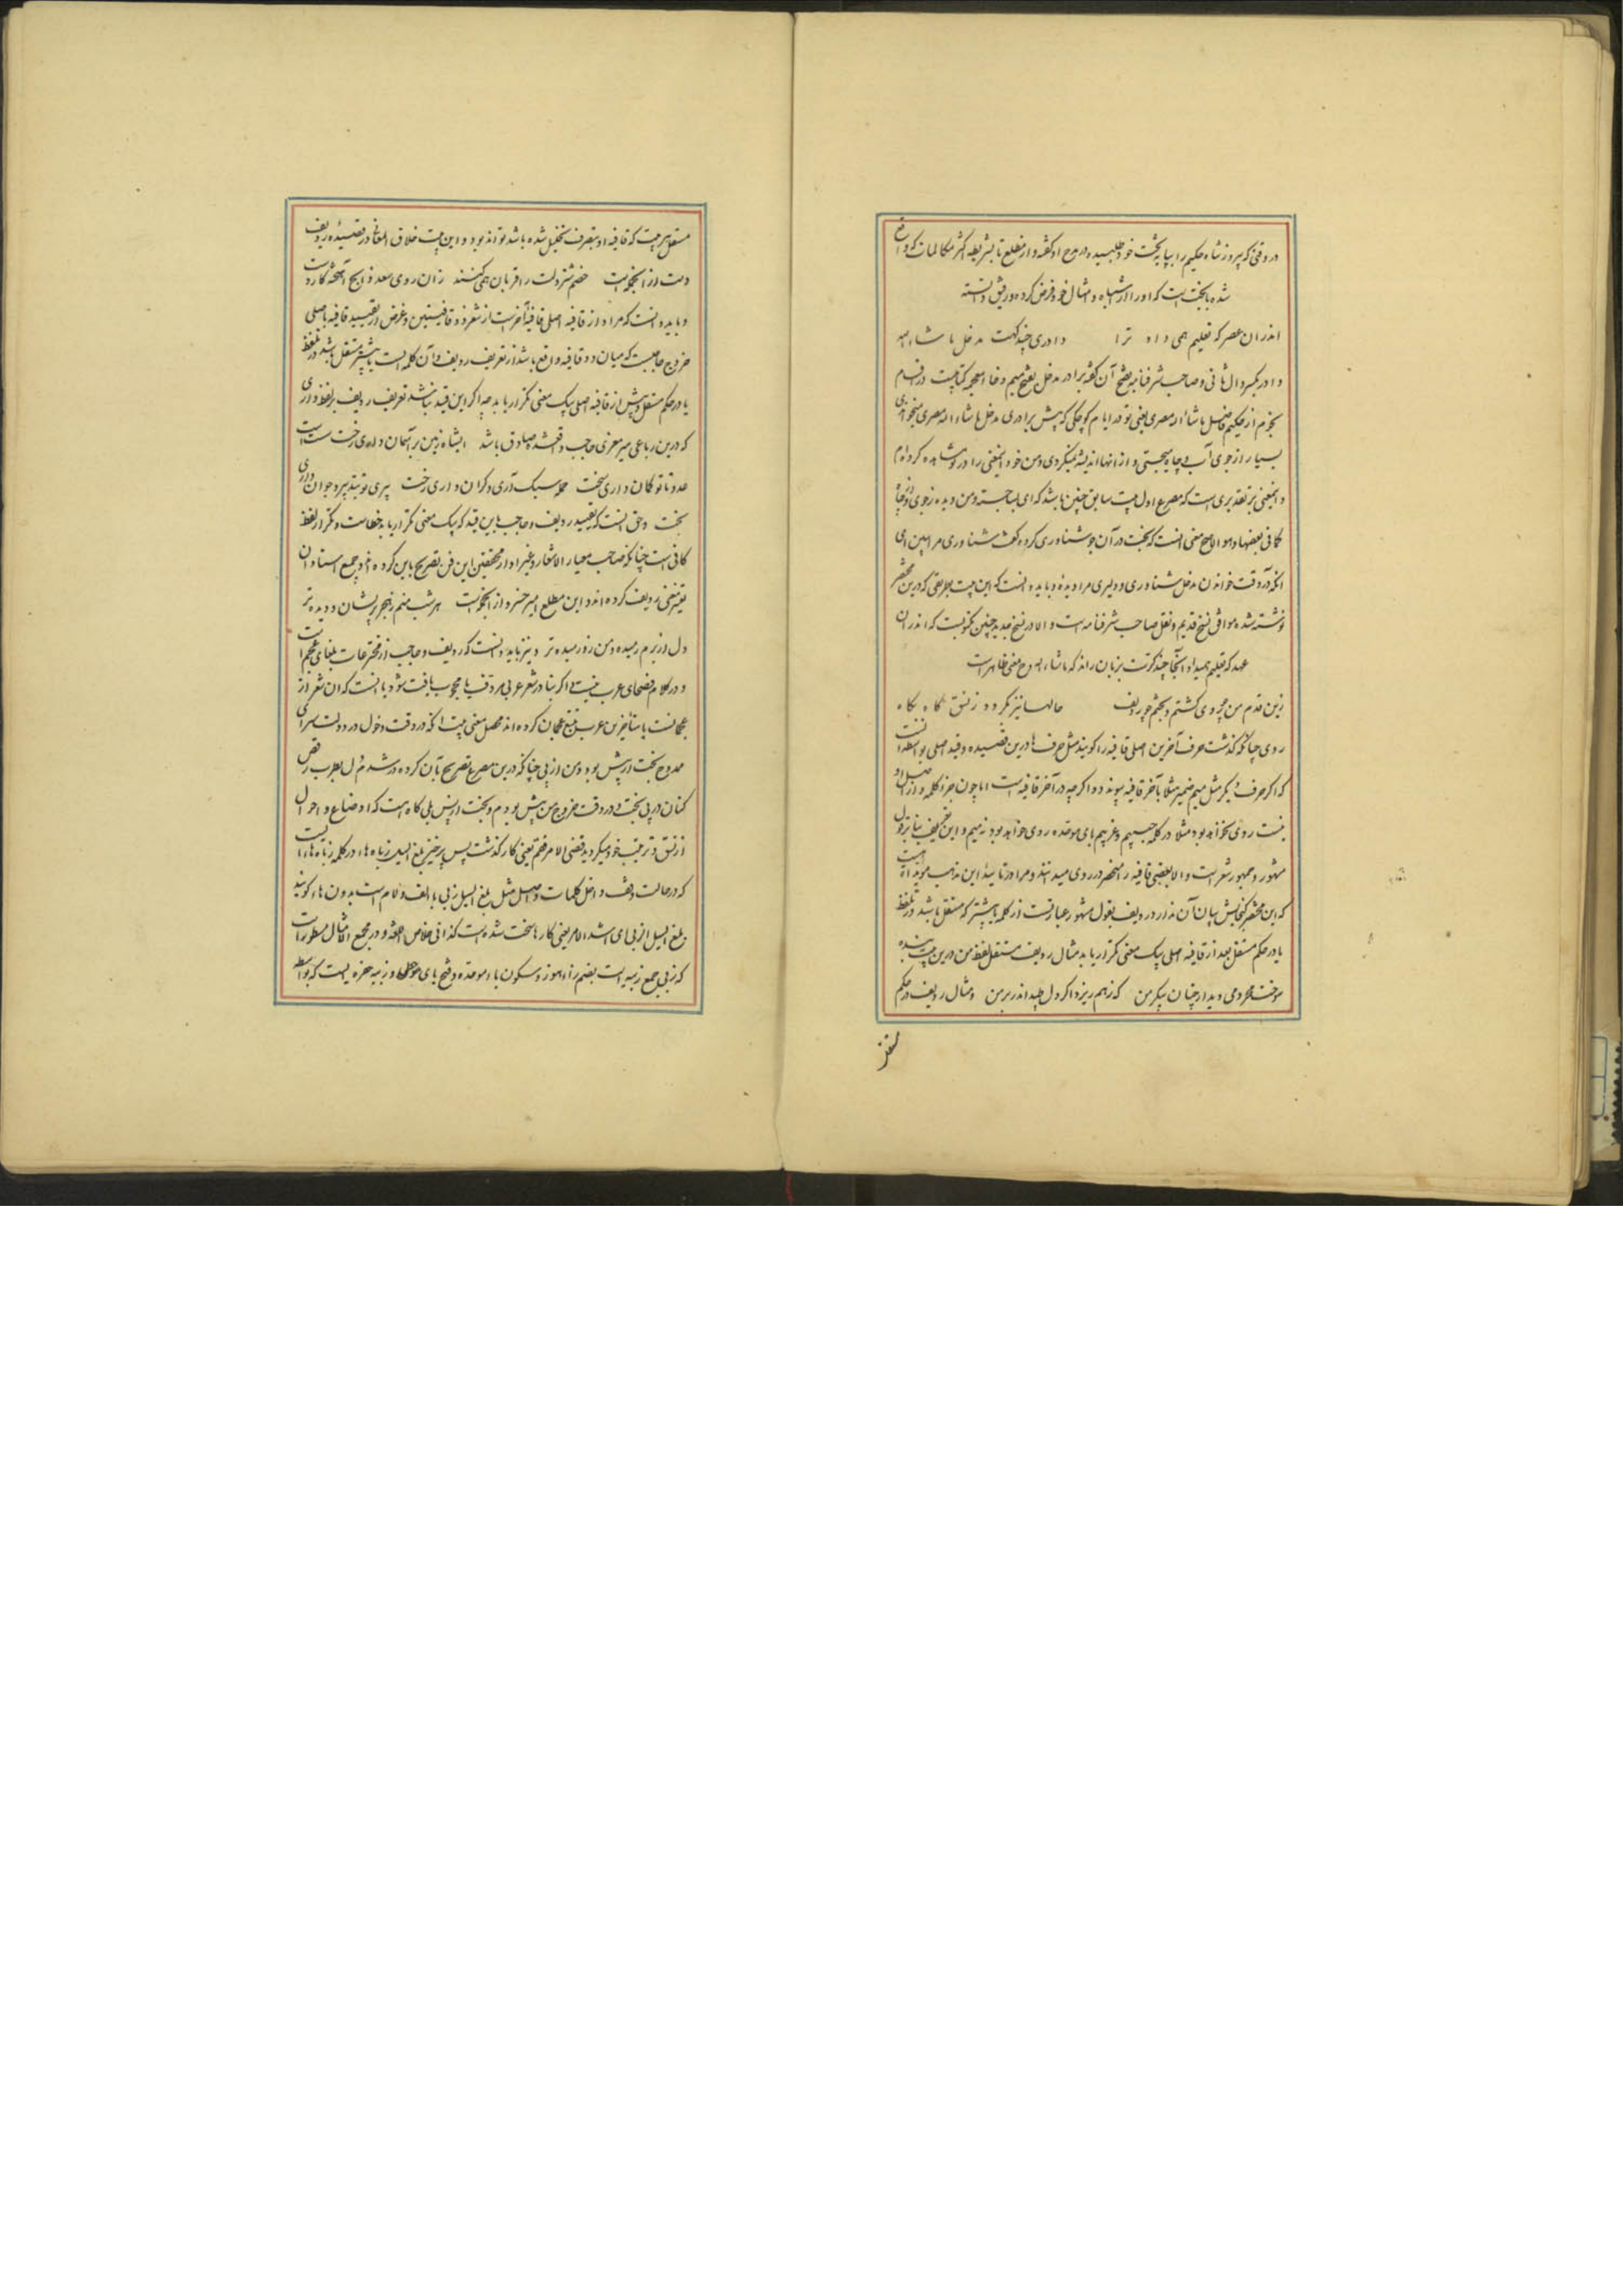 در وقتی که پیروز شاه حکیم را بپایه تخت خود طلبیده در مدح او گفته و از مطلع تا بشریطه اکثر مکالمات که واقع
شده با بخت است که او را از اشباه و امثال خود فرض کرده و رفیق دانسته
اندران عصر که تعلیم همی داد ترا دادری چند کهت مدخل ما شاء الله
دادر بکسر دال ثانی و صاحب شرفنامه بفتح آن گفته برادر مدخل بفتح میم و خاء معجمه کتابیست در اقسام
نجوم از حکیم فاضل ما شاء الله مصری یعنی تو در ایام کوچکی که پیش برادری مدخل ما شاء الله مصری میخواندی
بسیار از جوی آب و چاه میجستی و از انها اندیشه نمیکردی و من خود اینمعنی را در تو مشاهده کرده ام
و اینمعنی بر تقدیری است که مصرع اول بیت سابق چنین باشد که ای بسا جسته و من دیده ز جوی و از چاه
کما فی بعضها و هو الاصح معنی انست که بخت در آن جو شناوری کرده
انکه در وقت خواندن مدخل شناوری و دلیری مرا دیده و باید دانست که این بیت بطریقی که درین مختصر
نوشته شده موافق نسخ قدیم و نقل صاحب شرفنامه است و الا در نسخ جدید چنین مکتوبست که اندران
عهد که تعلیم همیداد آنجا چند کرت بزبان راند که ما شاء الله و معنی ظاهر است
زین قدم من چو روی گشتم و بختم چو ردیف حالها نیز نگردد ز نسق گاه بگاه
روی چنانکه گذشت حرف آخرین اصلی قافیه را گویند مثل حرف ها درین قصیده و قید اصلی بواسطه انست
که اگر حرف دیگر مثل میم ضمیر مثلا بآخر قافیه پیوندد اگرچه در آخر قافیه است اما چون جزء کلمه و از اصل او
نیست روی نخواهد بود مثلا در کلمه حبیبم و غریبم بای موحده روی خواهد بود نه میم و این تعریف بنا بر قول
مشهور و جمهور شعر است و الا بعضی قافیه را منحصر در روی میدانند و مرا در تایید این مذهب مویدات است
که این مختصر گنجایش بیان آن ندارد ردیف بقول مشهور عبارتست از کلمه یا بیشتر که مستقل باشد در تلفظ
یا در حکم مستقل بعد از قافیه اصلی بیک معنی تکرار یابد مثال ردیف مستقل لفظ من درین بیت
سوخت محرومی دیدار چنان پیکر من که ز هم ریزد اگر دل طپد اندر بر من و مثال ردیف در حکم
مستقل
مستقل هر بیت که قافیه او بتصرف تحلیل شده باشد تواند بود و این بیت خلاق المعانی در قصیده ردیف
دست از انجمله است خصم شتر دلت را قربان همی کنند زان روی سعد ذابح آهخته کارد است
و باید دانست که مراد از قافیه اصلی قافیه آخر است از شعر ذو قافیتین و غرض از تقیید قافیه باصلی
خروج حاجبست که میان دو قافیه واقع باشد از تعریف ردیف و آن کلمه است یا بیشتر مستقل باشد در تلفظ
یا در حکم مستقل و پیش از قافیه اصلی بیک معنی تکرار یابد چه اگر این قید نباشد تعریف ردیف بر لفظ داری
که درین رباعی میر معزی حاجب واقع شده صادق باشد ایشاه زمین بر آسمان داری تخت سست است
عدو تا تو کمان داری سخت حمله سبک آری و گران داری رخت پیری تو بتدبیر و جوان داری
بخت و حق انست که تقیید ردیف و حاجب باین قید که بیک معنی تکرار یابد خطاست و تکرار لفظ
کافی است چنانکه صاحب معیار الاشعار و غیر او از محققین این فن تصریح باین کرده اند و جمیع استادان
تتبع ردیف کرده اند و این مطلع امیر خسرو از انجمله است هر شب منم ز هجر پریشان و دیده تر
دل از برم رمیده و من زو رمیده تر و نیز باید دانست که ردیف و حاجب از مخترعات بلغای عجم است
و در کلام فصحای عرب نیست و اگر بنا در شعر عربی مردف یا محجوب یافت شود یا انست که آن شعر از
عجمانست یا متأخرین عرب تتبع عجمان کرده اند محصل معنی بیت انکه در وقت دخول در دولت سرای
ممدوح بخت از پیش بود و من از پی چنانکه درین مصرع تصریح بآن کرده در شدم دل بطرب رقص
کنان در پی بخت و در وقت خروج من پیش بودم و بخت از پس بلی گاه است که اوضاع و احوال
از نسق و ترتیب خود میگردد قضی الامر فقم یعنی کار گذشت پس برخیز بلغ السیل زباه هاء در کلمه زباه هاءایست
که در حالت وقف داخل کلمات و اصل مثل بلغ السیل زبی با الف و لام است بدون هاء گویند
بلغ السیل الزبی ای اشتد الامر یعنی کارها سخت شده است کذا فی خلاص اللغه و در مجمع الامثال مسطور است
که زبی جمع زبیه است بضم زاء هوز و سکون باء موحده و فتح یای و زبیه حفره ایست که بواسطه